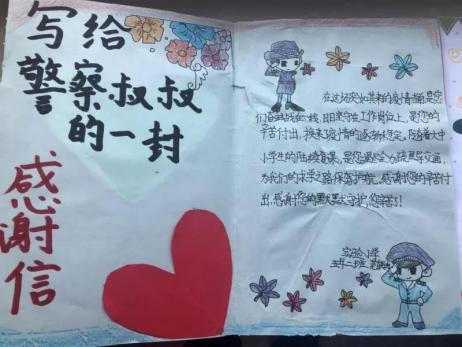 写给
警察叔叔
的一封
感谢信
在这场突如其来的疫情当前是您
们奋战在一线,日日夜夜守在工作岗位上,是您的
辛苦付出,换来疫情的逐渐稳定。随着大
中小学生的陆续复课,是您满腔
为我们的求学之路保驾护航。感谢您的辛苦付
出,感谢您的默默守护,您辛苦!
实验小学
五年二班